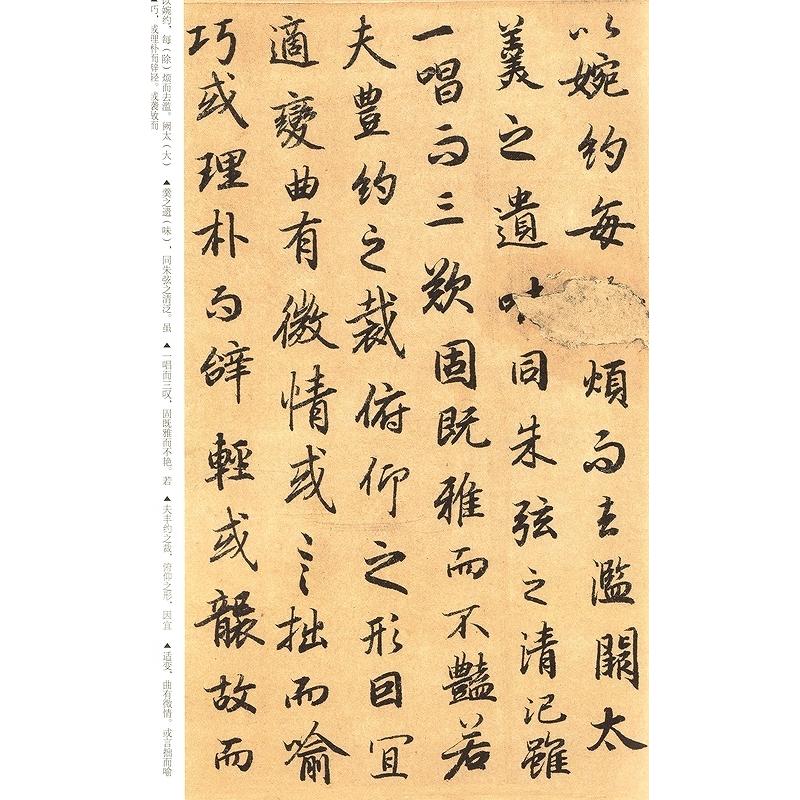 以婉約每煩而去濫闕太
羹之遺味同朱弦之清汜雖
一唱而三歎固既雅而不豔若
夫豊約之裁俯仰之形因宜
適變曲有微情或言拙而喻
巧或理朴而辞輕或襲故而
以婉约，每（除）烦而去滥。阙太（大） ▲羹之遗（味），同朱弦之清泛。虽 ▲一唱而三叹，固既雅而不艳。若 ▲夫丰约之裁，俯仰之形，因宜 ▲适变，曲有微情。或言拙而喻
▲巧，或理朴而辞轻。或袭故而